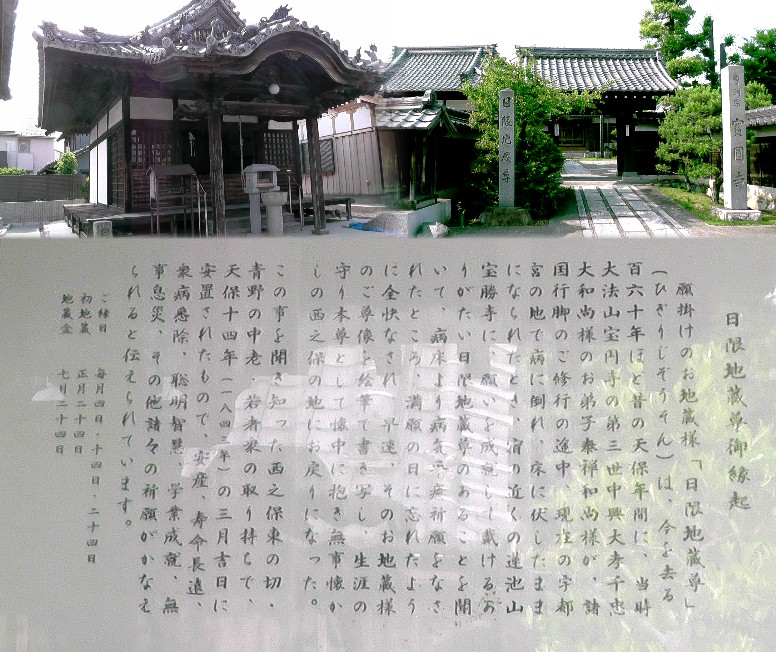 日限地蔵尊
曹洞宗 宝圓寺
日限地蔵尊御縁起
願掛けのお地蔵様「日限地蔵尊」
(ひぎりじぞうそん)は、今を去る
百六十年ほど昔の天保年間に、当時
大法山宝円寺の第三世中興大孝千忠
大和尚様のお弟子泰禅和尚様が、諸
国行脚のご修行の途中、現在の宇都
宮の地で病に倒れ、床に伏したまま
になられたとき、宿り近くの蓮池山
宝勝寺に、願いを成就して戴けるあ
りがたい日限地蔵尊のあることを聞
いて、病床より病気平癒祈願をなさ
れたところ、満願の日に忘れたよう
に全快なされ、早速、そのお地蔵様
のご尊像を絵筆で書き写し、生涯の
守り本尊として懐中に抱き無事懐か
しの西之保の地にお戻りになった。
この事を聞き知った西之保東の切・
青野の中老・若者衆の取り持ちで、
天保十四年(一八四三年)の三月吉日に
安置されたもので、安産、寿命長遠、
衆病悉除、聡明智慧、学業成就、無
事息災、その他諸々の祈願がかなえ
られると伝えられています。
ご縁日 毎月四日・十四日・二十四日
初地蔵 正月二十四日
地蔵会 七月二十四日